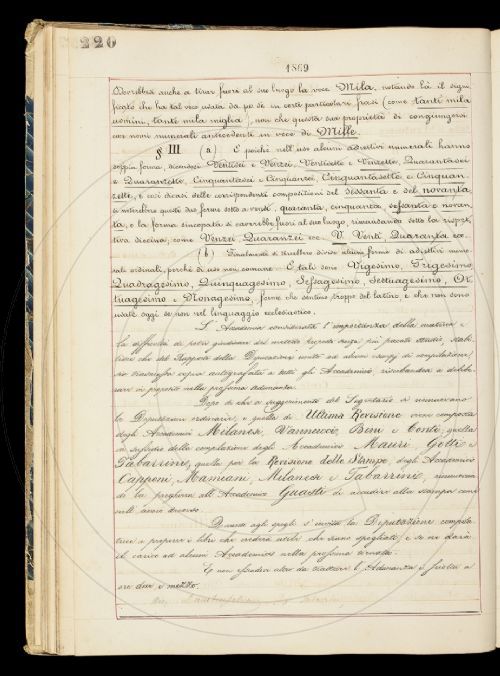 220
1869
Dovrebbesi anche a tirar fuori al suo luogo la voce Mila, notando là il signi-
ficato che ha tal voce usata da per sè in certi particolari frasi (come tanti mila
uomini, tante mila miglia), non che questa sua proprietà di congiungersi
con nomi numerali antecedenti in voce di Mille.
§ III (a) E poichè nell'uso alcuni adiettivi numerali hanno
doppia forma, dicendosi Ventisei e Venzei, Ventisette e Venzette, Quarantasei
e Quaranzette, Cinquantasei e Cinquanzei, Cinquantasette e Cinquan-
zette, e così dicasi delle corrispondenti composizioni del sessanta e del novanta,
si noterebbero queste due forme sotto a venti, quaranta, cinquanta, sessanta e novan-
ta, e la forma sincopata si caverebbe fuori al suo luogo, rimandando sotto la rispet-
tiva decina, come Venzei Quaranzei ecc. V. Venti, Quaranta ecc.
(b) Finalmente si darebbe divise alcune forme di adiettivi nume-
rali ordinali, perchè di uso non comune. E tali sono Vigesimo, Trigesimo,
Quadragesimo, Quinquagesimo, Sessagesimo, Settuagesimo, Ot-
tuagesimo e Nonagesimo, forme che sentono troppo del latino, e che non sono
usate oggi se non nel linguaggio ecclesiastico.
L'Accademia considerata l'importanza della materia e
la difficoltà di poter giudicare del metodo proposto senza più pacato studio, stabi-
lisce che del Rapporto della Deputazione unito ad alcuni esempj di compilazione,
sia trasmessa copia autografata a tutti gli Accademici, riserbandosi a delibe-
rare in proposito nella prossima adunanza.
Dopo di che a suggerimento del Segretario si rinnovano
le Deputazioni ordinarie, e quella di Ultima Revisione viene composta
degli Accademici Milanesi, Vannucci, Bini e Conti, quella
in sussidio della compilazione degli Accademici Mauri, Gotti e
Tabarrini, quella per la Revisione delle Stampe, degli Accademici
Capponi, Mamiani, Milanesi e Tabarrini, rinnovan-
do la preghiera all'Accademico Guasti di accudire alla stampa come
nell'anno decorso.
Quanto agli spogli s'invita la Deputazione compila-
trice a proporre i libri che crederà utili che siano spogliati, e se ne darà
il carico ad alcuni Accademici nella prossima tornata.
E non essendovi altro da trattare l'Adunanza è sciolta a
ore due e mezzo.